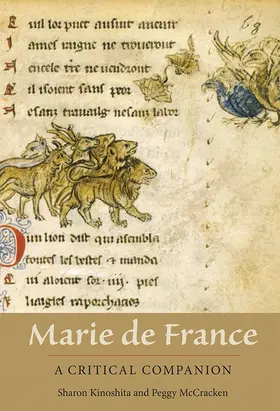 uil lor puet ausint auenir
ames uigne ne troueront
encele tre ne uendront
il isoient sanz peor
esanz trauailg nesanz labor
un lion dist qui asembla
toutes les bestes & manda
ui aloient sor iiij pies
liaigles
Marie de France
A CRITICAL COMPANION
Sharon Kinoshita and Peggy McCracken